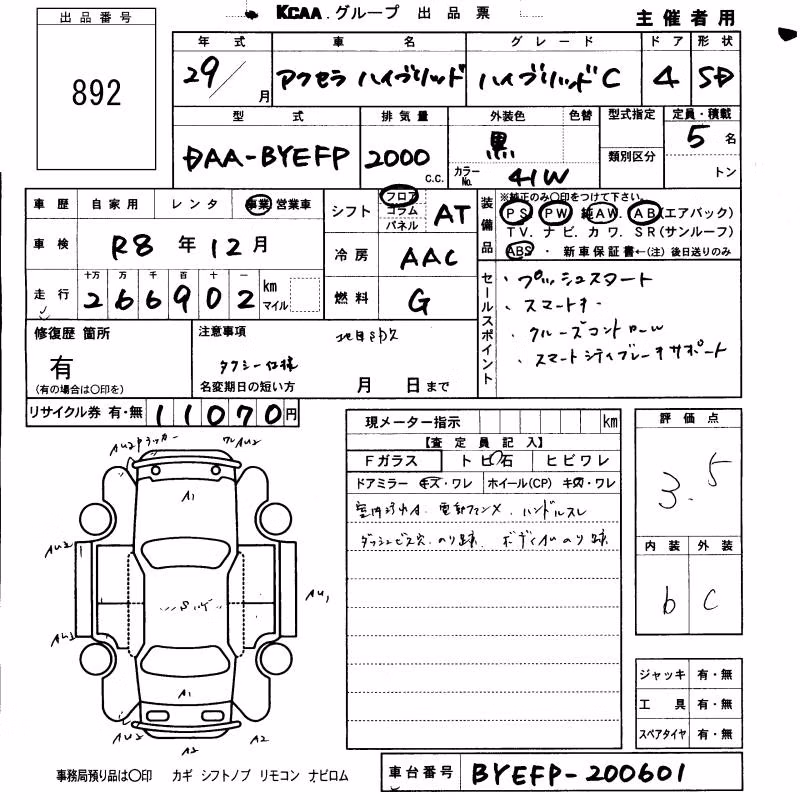 KCAA.グループ 出品票
主催者用
出品番号
892
年式 車名 グレード ドア 形状
29/ 月 アクセラ ハイブリッド ハイブリッドC 4 SD
型式 排気量 外装色 色替 型式指定 定員・積載
DAA-BYEFP 2000 c.c. 黒 5 名
カラーNo. 41W 類別区分 トン
車歴 自家用 レンタ 事業 営業車
車検 R8 年 12 月
走行 十万 万 千 百 十 一
266902 km マイル
シフト フロア コラム パネル AT
冷房 AAC
燃料 G
装備品 ※純正のみ○印をつけて下さい。
PS PW 純AW. AB(エアバック)
TV. ナビ. カワ. SR(サンルーフ)
ABS ・ 新車保証書←(注)後日送りのみ
セールスポイント
・プッシュスタート
・スマートキー
・クルーズコントロール
・スマートシティブレーキサポート
修復歴 箇所
有
(有の場合は○印を)
注意事項
タクシー仕様
名変期日の短い方 月 日まで
リサイクル券 有・無 11070円
現メーター指示 km
【査定員記入】
Fガラス トビ石 ヒビワレ
ドアミラー キズ・ワレ ホイール(CP) キズ・ワレ
電動ファンX. ハンドルスレ
ダッシュビス穴. のり跡. のり跡.
評価点
3.5
内装 外装
b C
ジャッキ 有・無
工具 有・無
スペアタイヤ 有・無
AU2 ワレAU2
A1
AU2
AU1
AU2
A1
AU2 A2 A2
事務局預り品は○印 カギ シフトノブ リモコン ナビロム
車台番号 BYEFP-200601